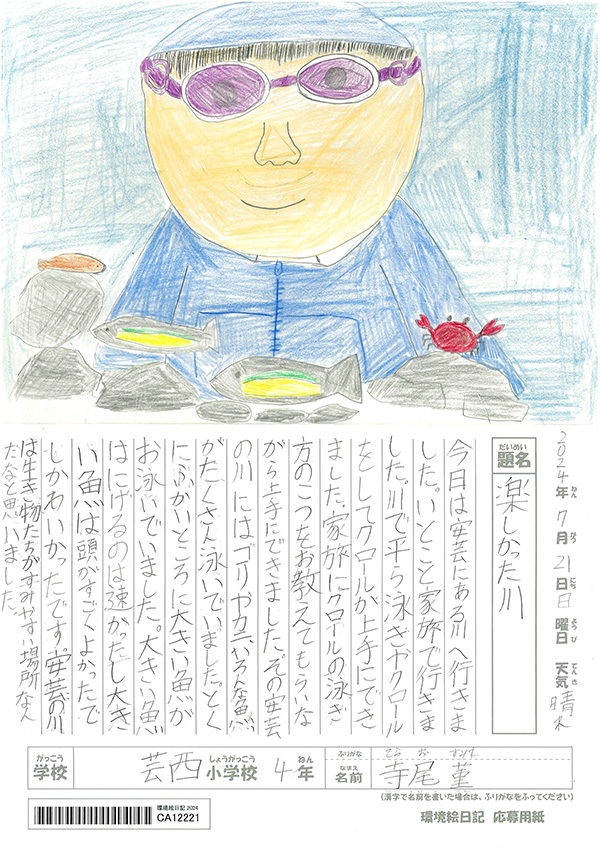 2024年ねん7月がつ21日にち日曜日ようび 天気てんき晴れ
だいめい
題名
楽しかった川
今日は安芸にある川へ行きま
した。いとこと家旅で行きま
した。川で平ら泳ぎやクロール
をしてクロールが上手にでき
ました。家旅にクロールの泳ぎ
方のこつをお教えてもらいな
がら上手にできました。その安芸
の川にはゴリやカニいろんな魚
がたくさん泳いでいました。とく
にふかいところに大きい魚が
お泳いでいました。大きい魚
はにげるのは速かったし大き
い魚は頭がすごくよかったで
しかわいかったです。安芸の川
は生き物たちがすみやすい場所なん
だなと思いました。
がっこう
学校
芸西小学校しょうがっこう 4年ねん
ふりがな
てら お すみれ
なまえ
名前
寺尾 菫
(漢字で名前を書いた場合は、ふりがなをふってください)
環境絵日記 2024
CA12221
環境絵日記 応募用紙